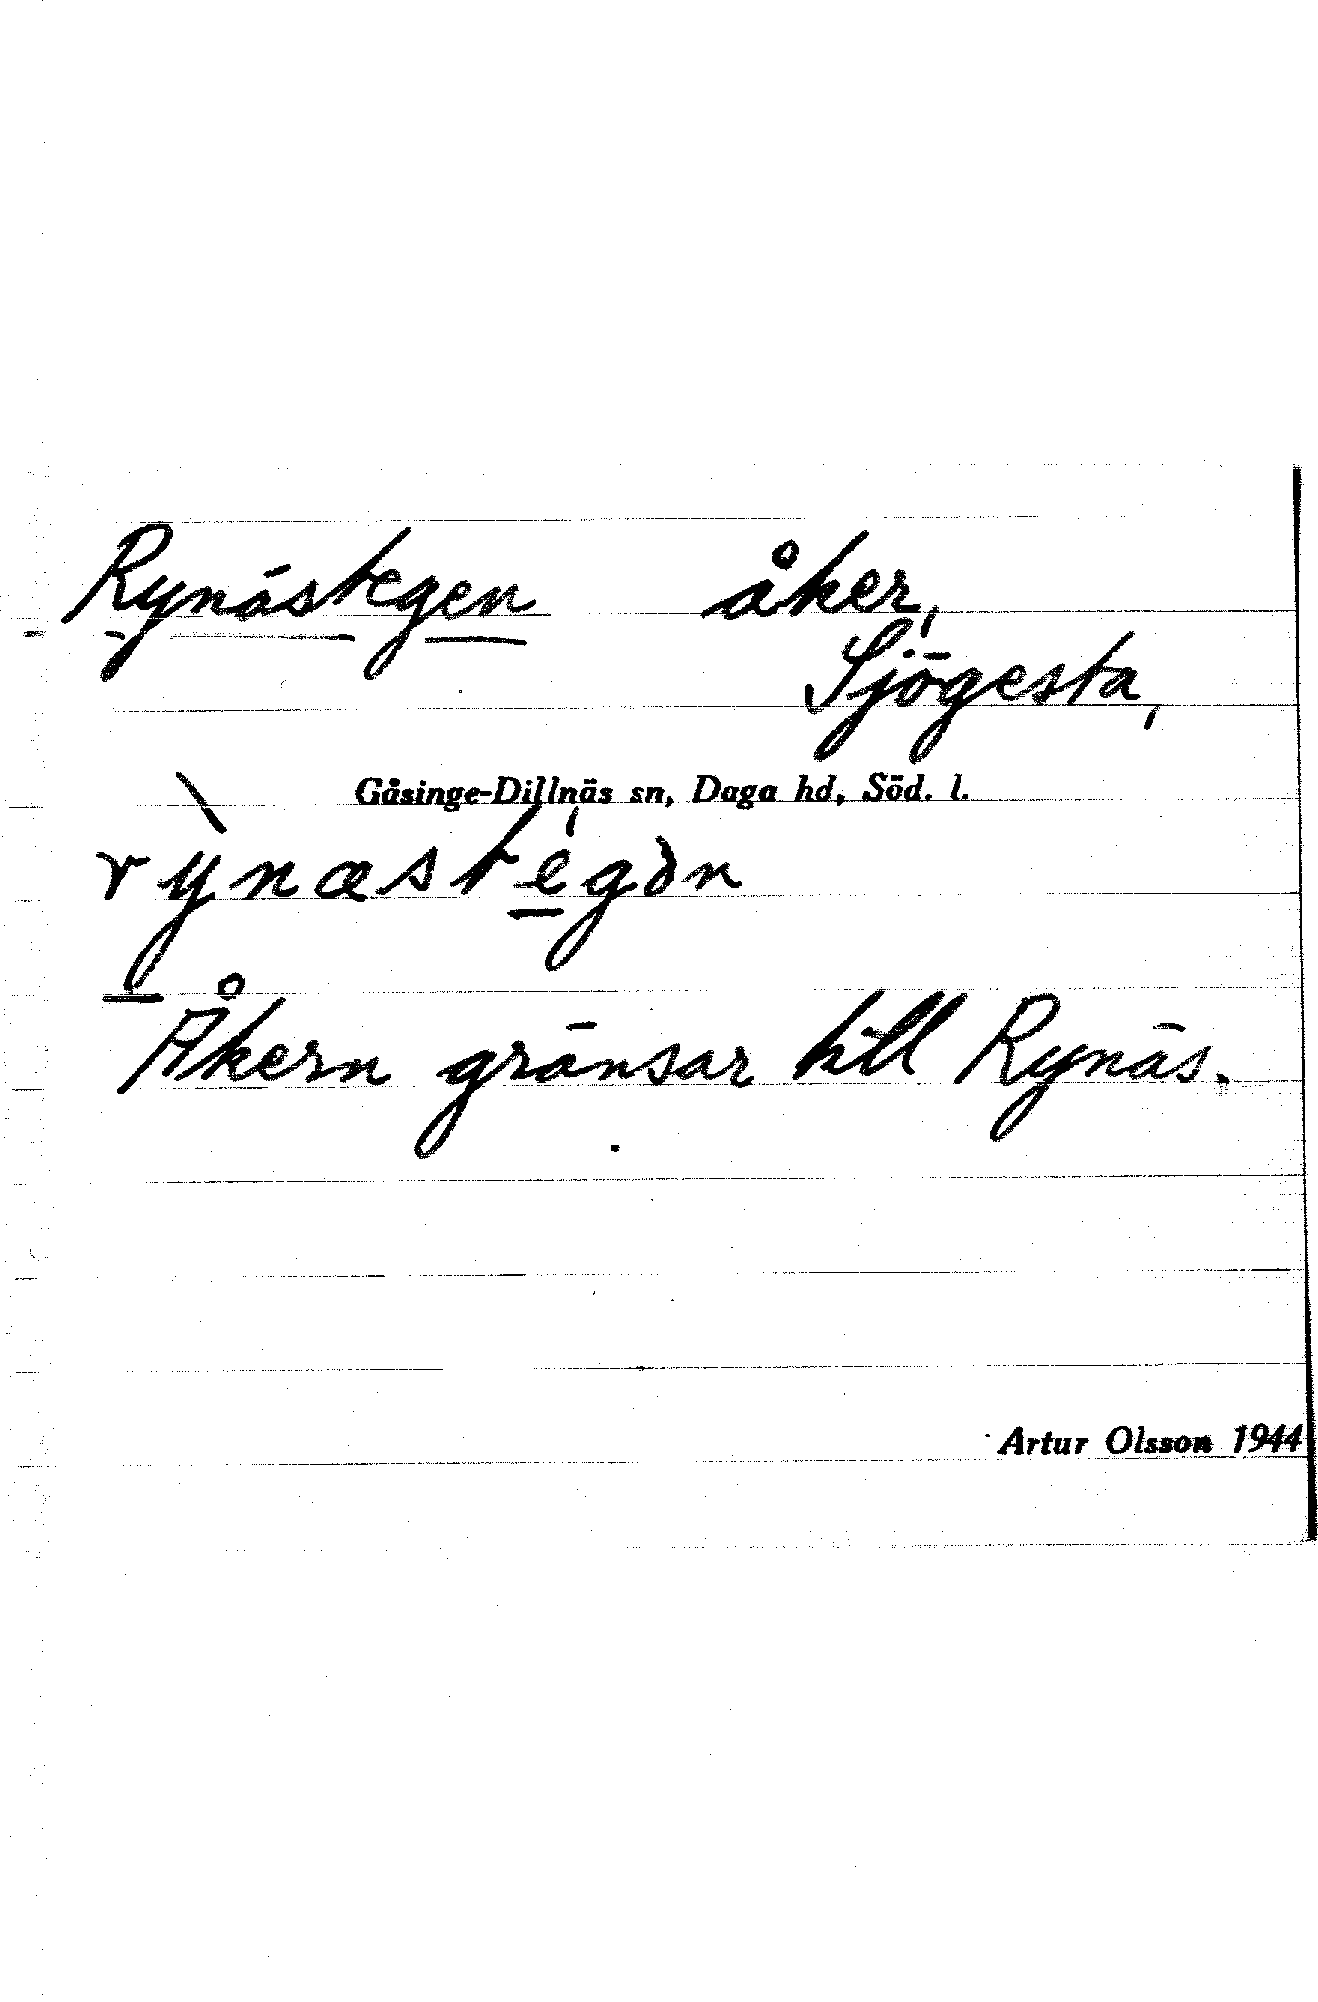 Rynästegen åker,
Sjögesta,
Gåsinge-Dillnäs sn, Daga hd, Söd. l.
rỳnæstégən
Åkern gränsar till Rynäs.
Artur Olsson 1944